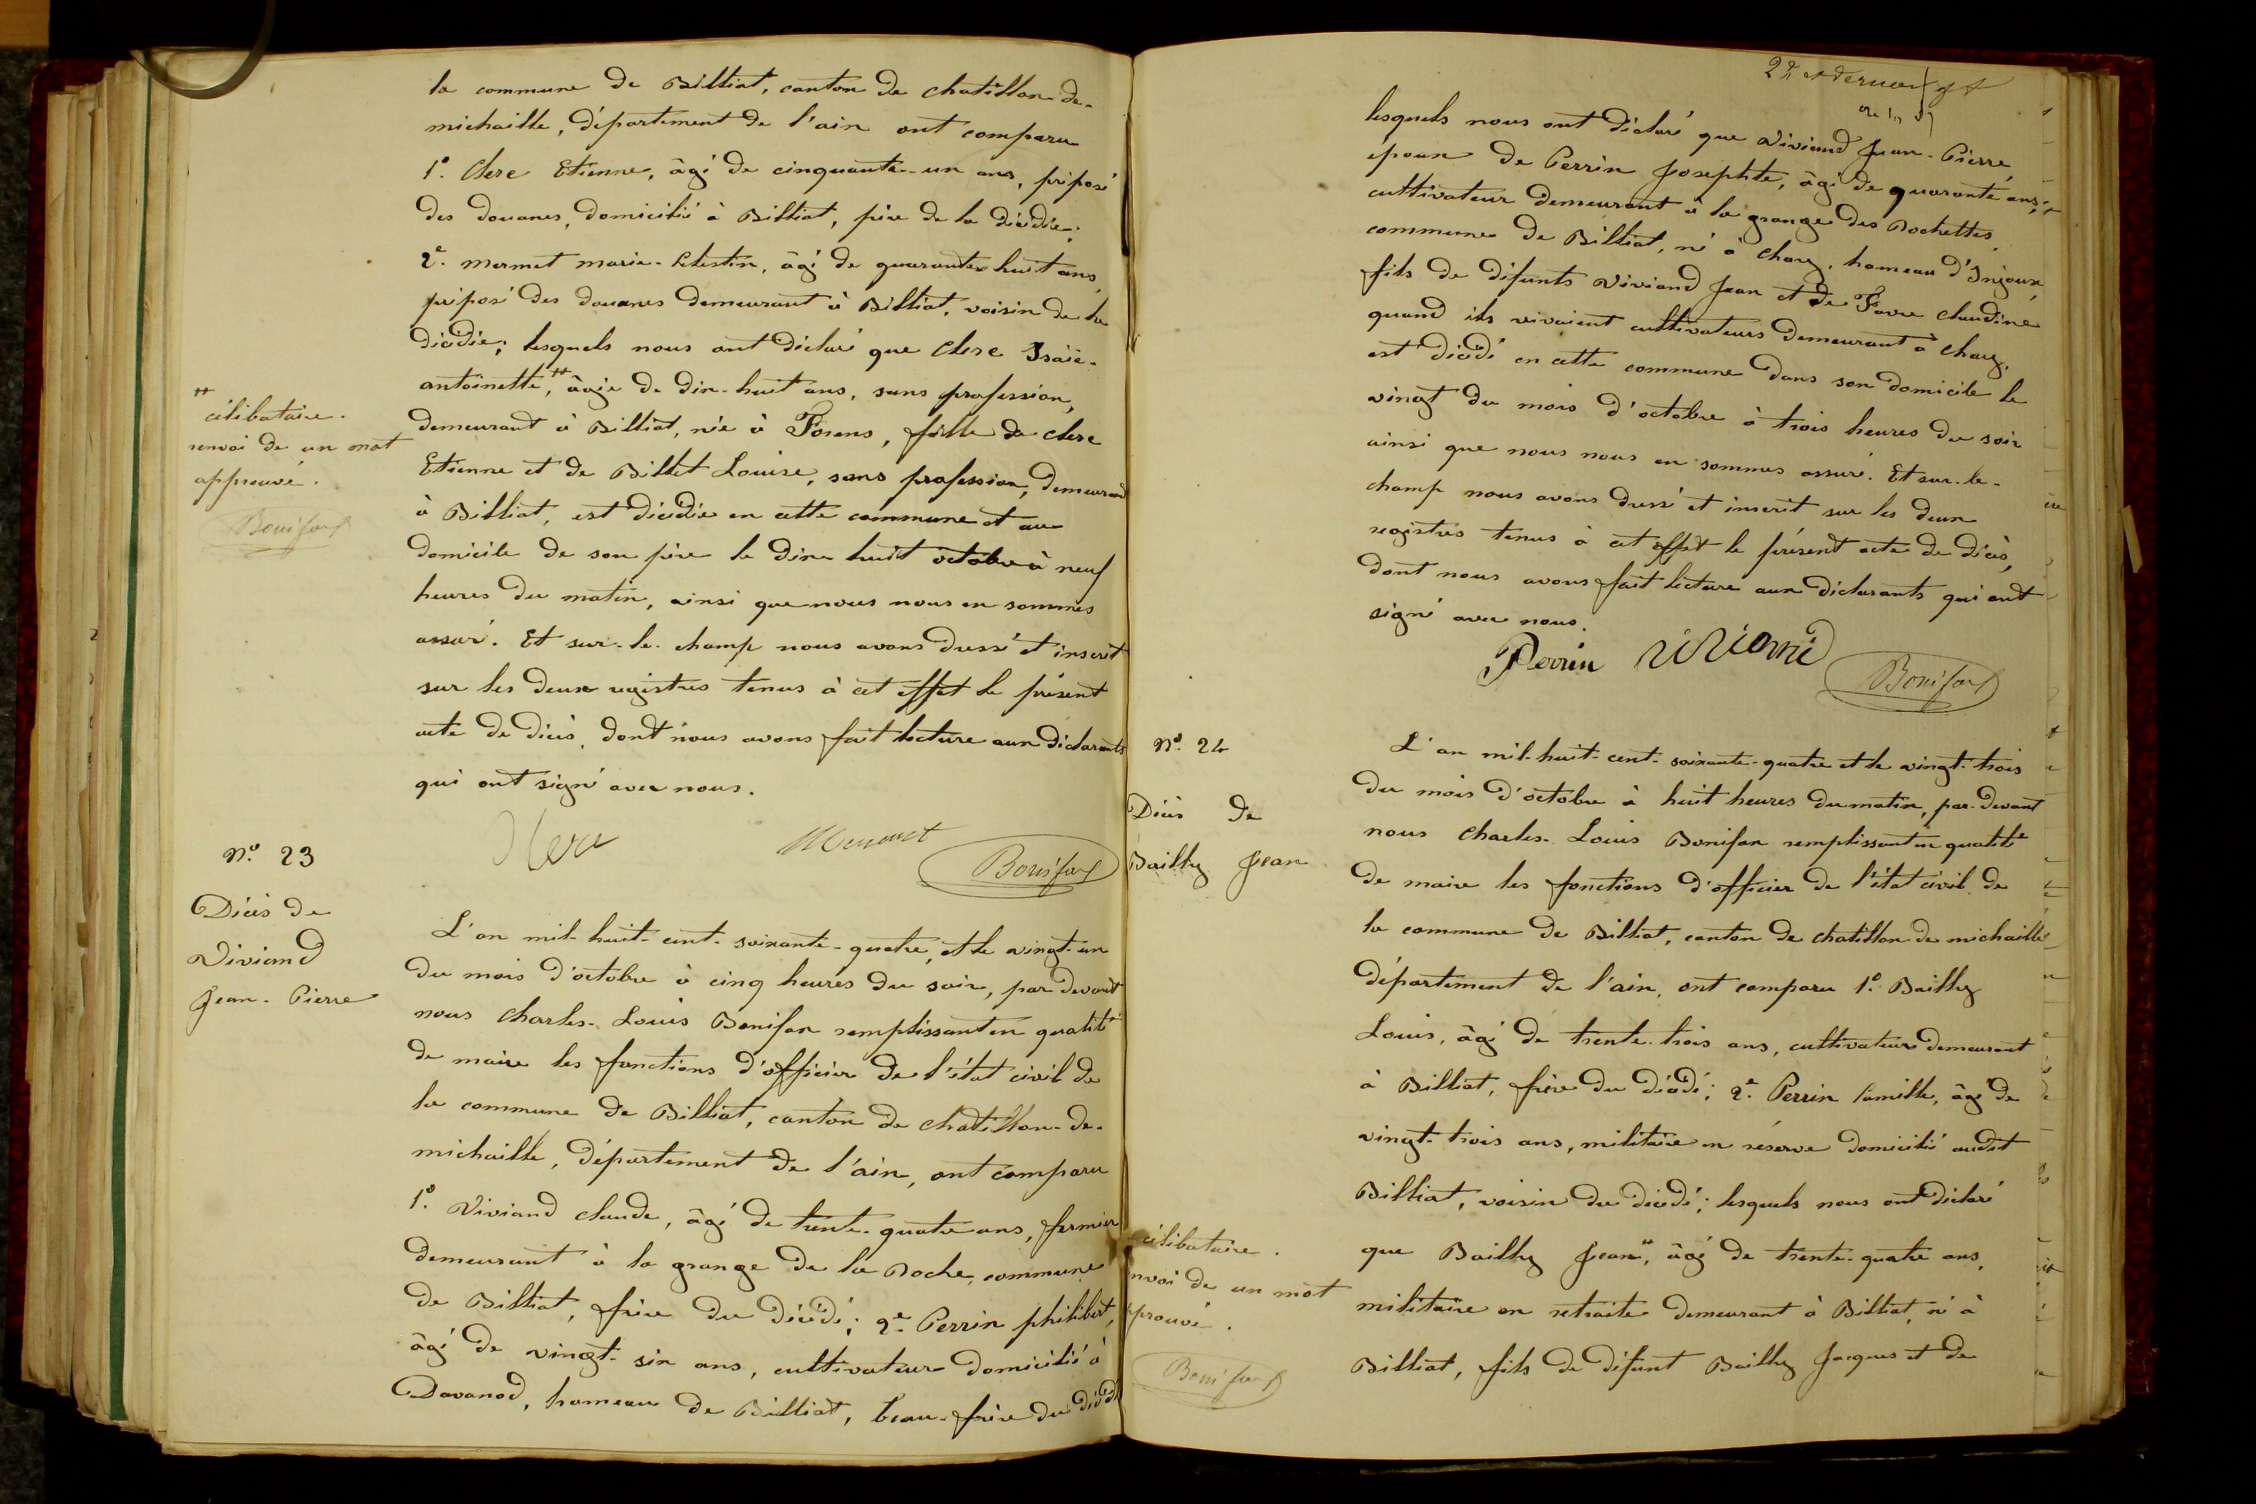 la commune de Billiat, canton de chatillon-de-
michaille, département de l'ain ont comparu
1º. Clerc Etienne, âgé de cinquante-un ans, préposé
des douanes, domicilié à Billiat, père de la décédée;
2º. mermet marie-Célestin, âgé de quarante huit ans,
préposé des douanes demeurant à Billiat, voisin de la
décédée; lesquels nous ont déclaré que Clerc Isaïe-
antoinette, ## âgée de dix-huit ans, sans profession,
demeurant à Billiat, née à Forens, fille de clerc
Etienne et de Billet Louise, sans profession, demeurant
à Billiat, est décédée en cette commune et au
domicile de son père le dix huit octobre à neuf
heures du matin, ainsi que nous nous en sommes
assuré. Et sur-le-champ nous avons dressé et inscrit
sur les deux registres tenus à cet effet le présent
acte de décès, dont nous avons fait lecture aux déclarants
qui ont signé avec nous.
## célibataire.
renvoi de un mot
approuvé.
Bonifax
Clerc Mermet Bonifax
Nº. 23
Décès de
Viviand
Jean-Pierre
L'an mil-huit-cent-soixante-quatre, et le vingt-un
du mois d'octobre à cinq heures du soir, par devant
nous Charles-Louis Bonifax remplissant en qualité
de maire les fonctions d'officier de l'état civil de
la commune de Billiat, canton de chatillon-de-
michaille, département de l'ain, ont comparu
1º. Viviand claude, âgé de trente-quatre ans, fermier
demeurant à la grange de la Roche, commune
de Billiat, frère du décédé; 2º. Perrin philibert,
âgé de vingt-six ans, cultivateur domicilié à
Davanod, hameau de Billiat, beau-frère du décédé
lesquels nous ont déclaré que Viviand Jean-Pierre,
époux de Perrin Josephte, âgé de quarante ans,
cultivateur demeurant à la grange des Rochettes,
commune de Billiat, né à Chary, hameau d'Injoux,
fils de défunts Viviand Jean et de Favre Claudine
quand ils vivaient cultivateurs demeurant à Chary,
est décédé en cette commune dans son domicile le
vingt du mois d'octobre à trois heures du soir
ainsi que nous nous en sommes assuré. Et sur-le-
champ nous avons dressé et inscrit sur les deux
registres tenus à cet effet le présent acte de décès,
dont nous avons fait lecture aux déclarants qui ont
signé avec nous.
Perrin Viviand Bonifax
Nº. 24
Décès de
Bailly Jean
L'an mil-huit-cent-soixante-quatre et le vingt-trois
du mois d'octobre à huit heures du matin, par-devant
nous Charles-Louis Bonifax remplissant en qualité
de maire les fonctions d'officier de l'état civil de
la commune de Billiat, canton de chatillon de michaille
département de l'ain, ont comparu 1º. Bailly
Louis, âgé de trente-trois ans, cultivateur demeurant
à Billiat, frère du décédé; 2º. Perrin Camille, âgé de
vingt-trois ans, militaire en réserve domicilié audit
Billiat, voisin du décédé; lesquels nous ont déclaré
que Bailly Jean ##, âgé de trente-quatre ans,
militaire en retraite demeurant à Billiat, né à
Billiat, fils de défunt Bailly Jacques et de
célibataire.
nvoi de un mot
prouvé.
Bonifax